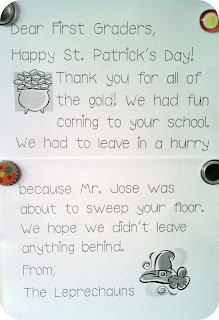 Dear First Graders,
Happy St. Patrick's Day!
Thank you for all of
the gold! We had fun
coming to your school.
We had to leave in a hurry
because Mr. Jose was
about to sweep your floor.
We hope we didn't leave
anything behind.
From,
The Leprechauns